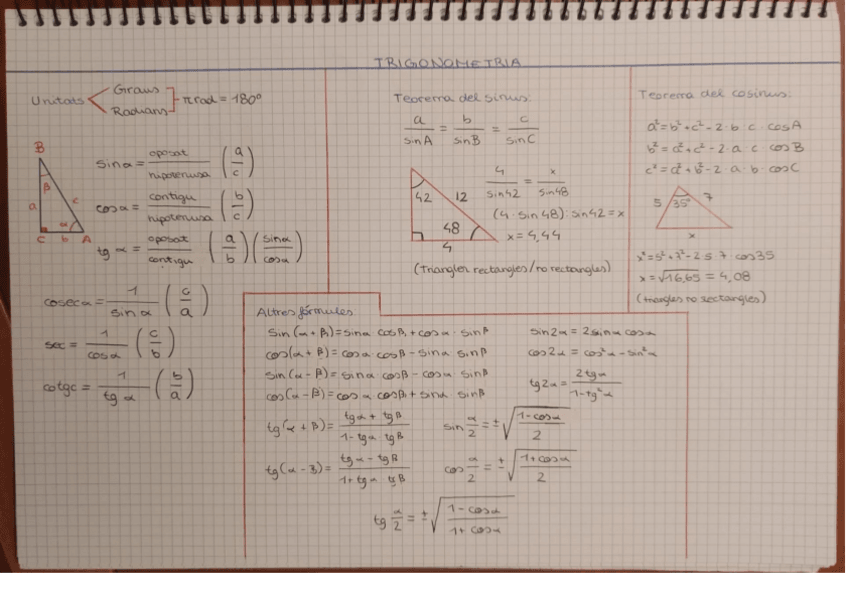 TRIGONOMETRIA
Unitats Graus
Radians
πrad = 180º
B
β
a
c
α
C b A
sinα = oposat/hipotenusa (a/c)
cosα = contigu/hipotenusa (b/c)
tg α = oposat/contigu (a/b) (sinα/cosα)
cosecα = 1/sinα (c/a)
sec = 1/cosα (c/b)
cotgc = 1/tg α (b/a)
Teorema del sinus:
a/sinA = b/sinB = c/sinC
42 12
48
4
4/sin42 = x/sin48
(4·sin48):sin42 = x
x = 4,44
(triangles rectangles/no rectangles)
Teorema del cosinus:
a²=b²+c²-2·b·c·cosA
b²=a²+c²-2·a·c cosB
c²=a²+b²-2·a·b·cosC
5 35º 7
x
x²=5²+7²-2·5·7 cos35
x=√16,65 = 4,08
(triangles no rectangles)
Altres fórmules
sin(α+β)=sinα·cosβ+cosα·sinβ
cos(α+β)=cosα·cosβ-sinα·sinβ
sin(α-β)=sinα·cosβ-cosα·sinβ
cos(α-β)=cosα·cosβ+sinα·sinβ
tg(α+β)= tgα+tgβ/1-tgα·tgβ
tg(α-β)= tgα-tgβ/1+tgα·tgβ
sin2α=2sinα cosα
cos2α=cos²α-sin²α
tg2α= 2tgα/1-tg²α
sin α/2 = ±√(1-cosα/2)
cos α/2 = ±√(1+cosα/2)
tg α/2 = ±√(1-cosα/1+cosα)